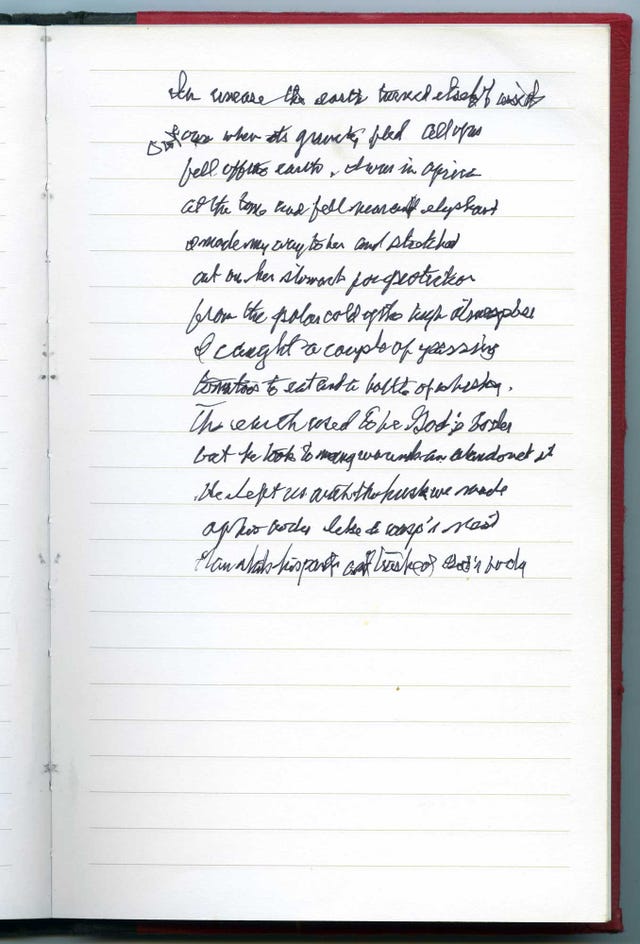 the earth turned itself inside
out when its gravity fled all of us
fell off the earth. I was in africa
at the time and fell near an elephant
I made my way to her and stretched
out on her stomach for protection
from the polar cold of the high atmosphere
I caught a couple of passing
tomatoes to eat and a bottle of whiskey.
The earth used to be God's body
but he took to many wounds an abandonet it
He left us with the husk we made
of his body like a wasp's nest
God's body